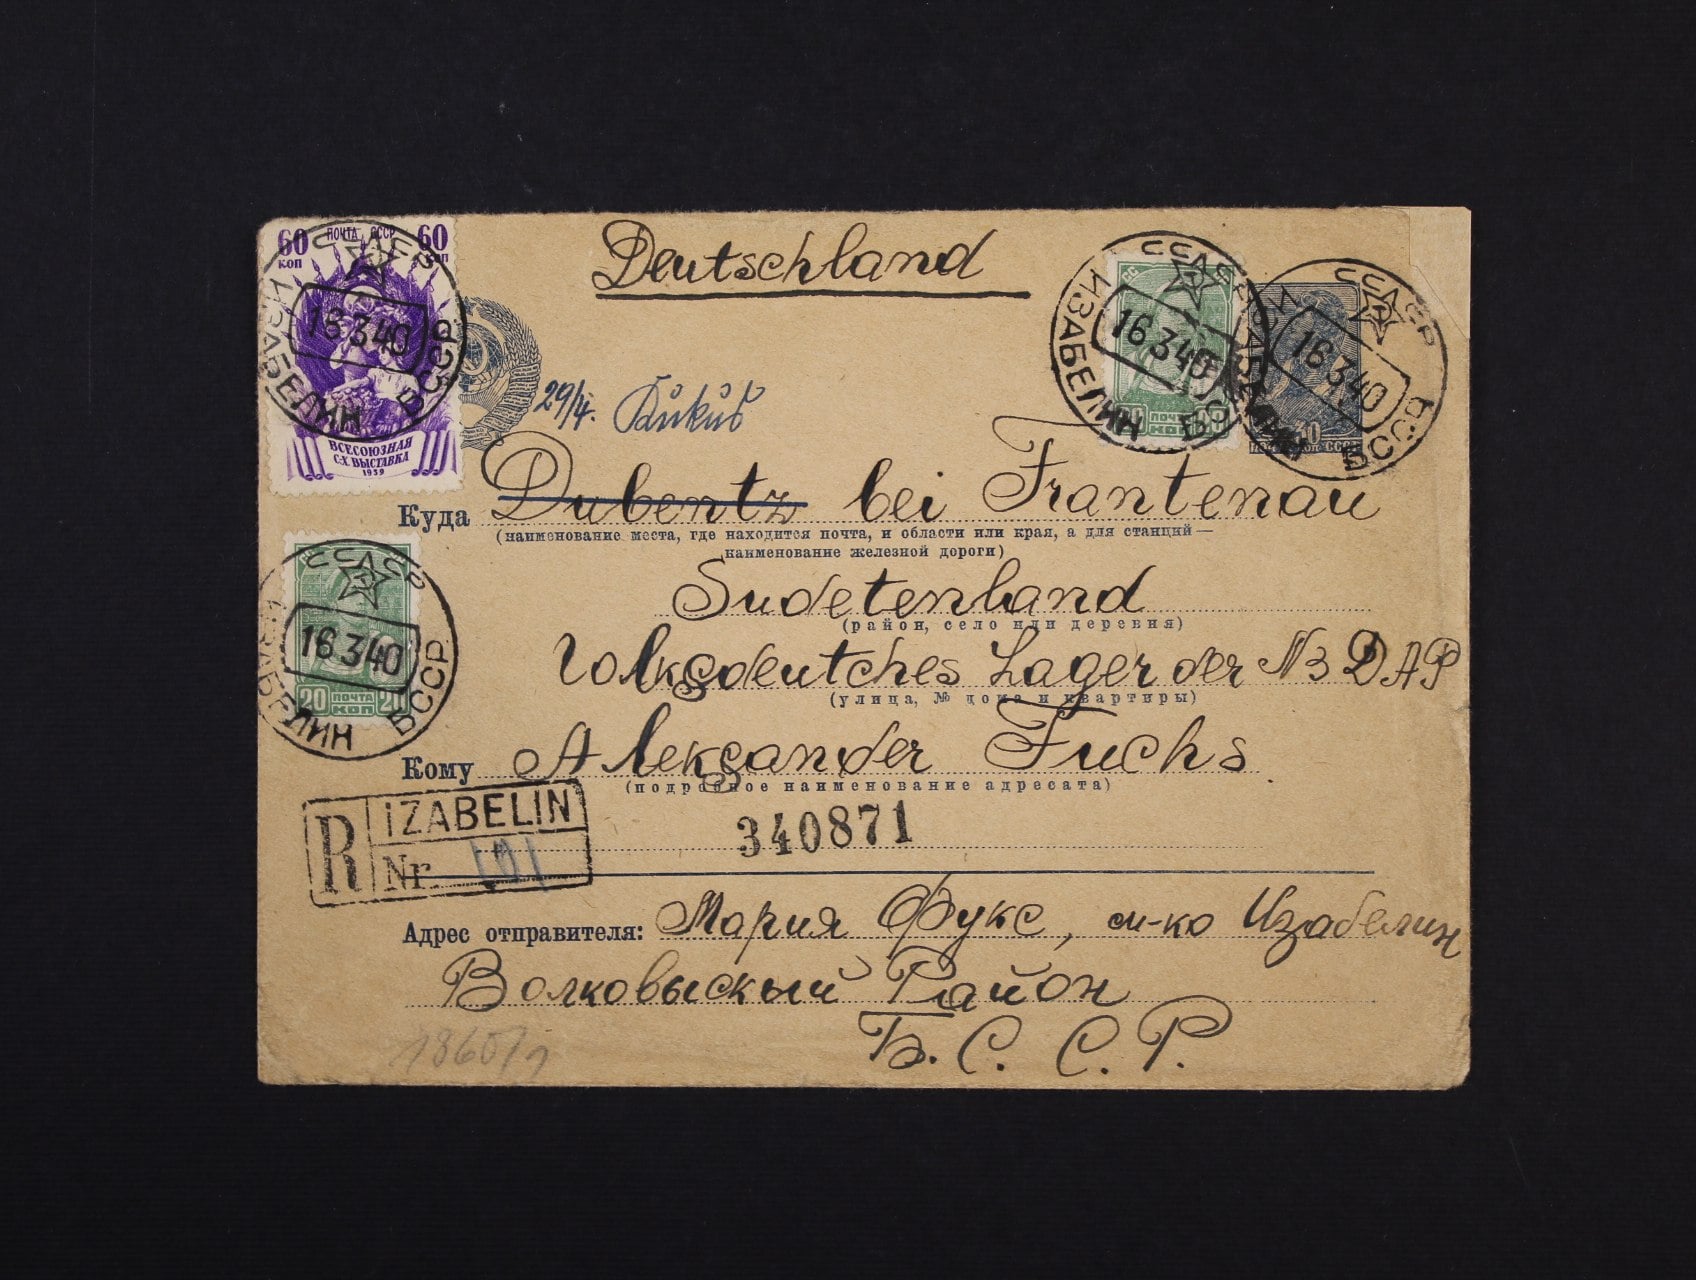 Deutschland
60 ПОЧТА СССР 60
КОП КОП
ВСЕСОЮЗНАЯ
С-Х. ВЫСТАВКА
1939
СССР ИЗАБЕЛИН БССР
16 3 40
СССР ИЗАБЕЛИН БССР
16 3 40
20 ПОЧТА 20
КОП
СССР ИЗАБЕЛИН БССР
16 3 40
30
29/4.
Куда Dubentz bei Frantenau
(наименование места, где находится почта, и области или края, а для станций—
наименование железной дороги)
Sudetenland
(район, село или деревня)
Volksdeutches Lager der NSDAP
(улица, № дома и квартиры)
СССР ИЗАБЕЛИН БССР
16 3 40
20 ПОЧТА 20
КОП
Кому Aleksander Fuchs
(подробное наименование адресата)
R IZABELIN
Nr. 101
340871
Адрес отправителя: Мария Фукс, м-ко Изабелин
Волковыский Район
Б. С. С. Р.